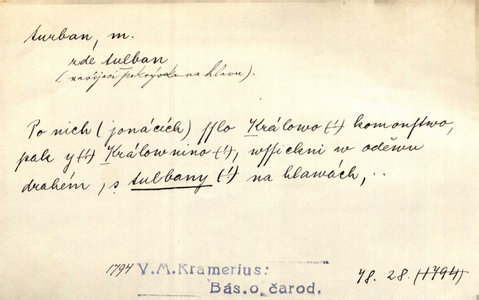 turban, m.
zde tulban
(navíjecí pokrývka na hlavu).
Po nich (jonácích) sslo Králowo (!) komonstwo,
pak y (!) Králownino (!), wssickni w oděwu
drahém, s tulbany (!) na hlawách, ..
1794 V. M. Kramerius:
Bás. o čarod.
48. 28. (1794)